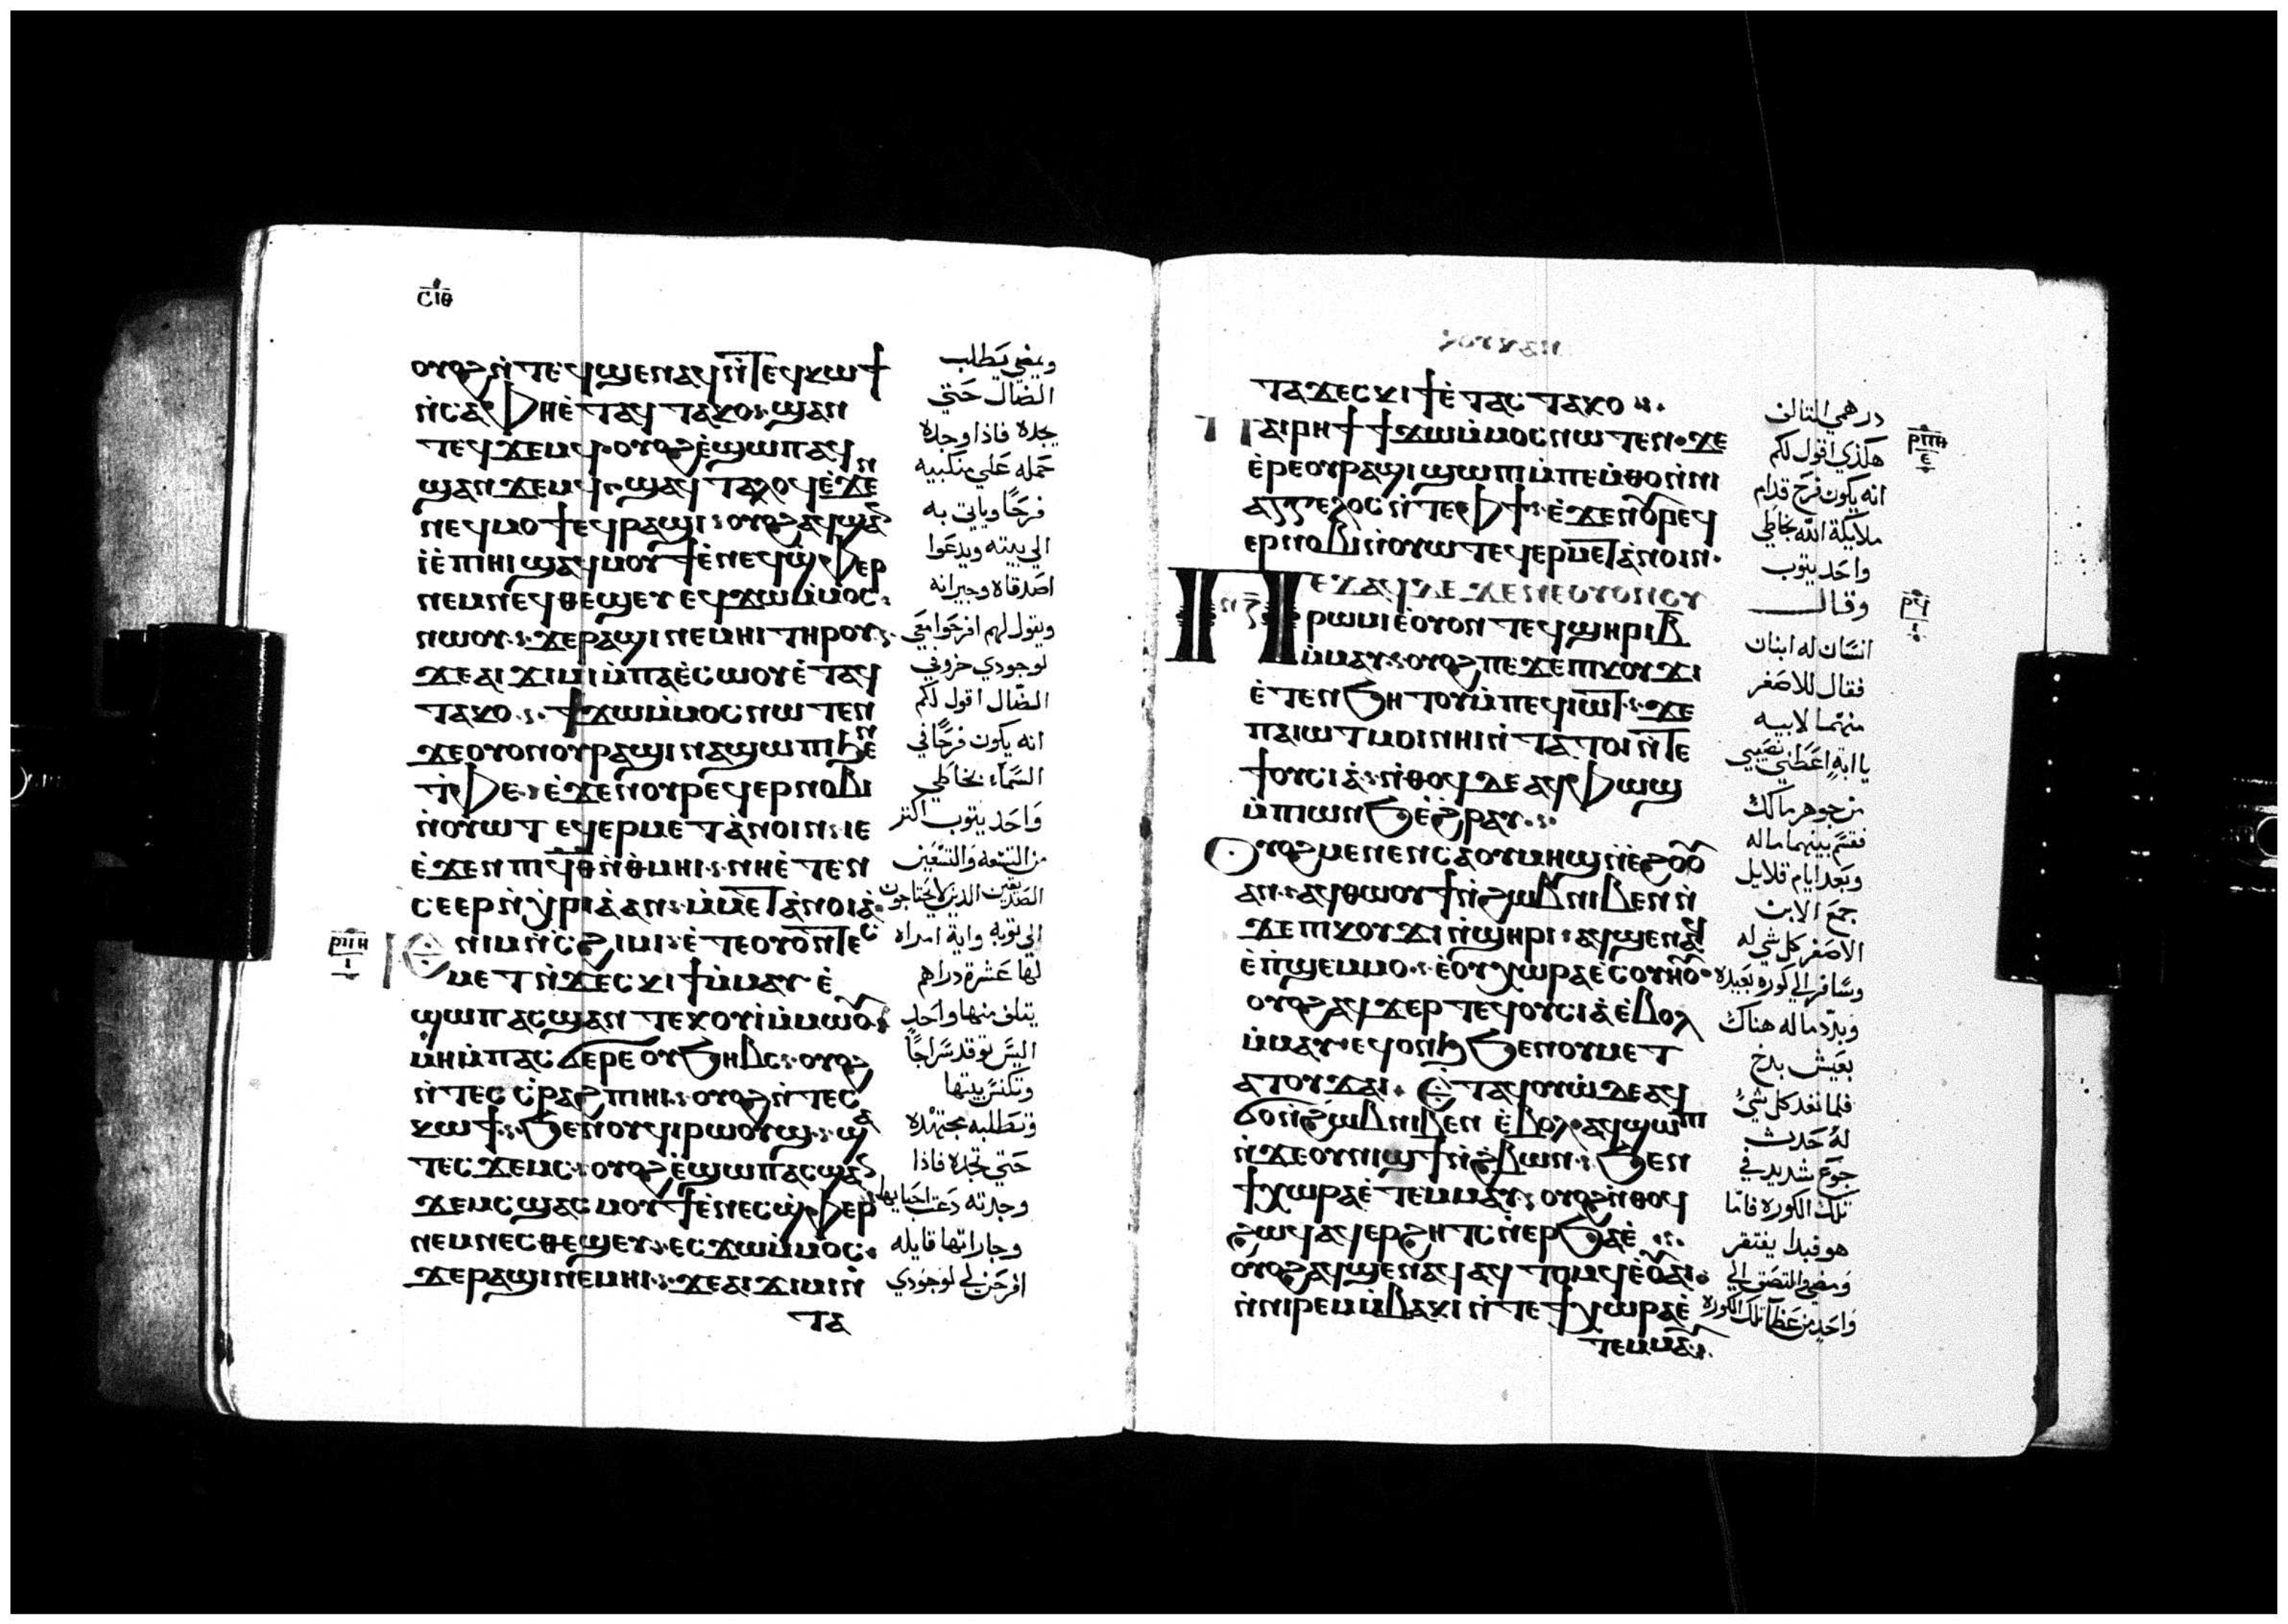 ⲥⲓⲑ
ⲟⲩⲟϩ ⲛ̀ⲧⲉϥϣⲉⲛⲁϥ ⲛ̀ⲧⲉϥⲕⲱϯ
ⲛ̀ⲥⲁⲫⲏⲉ̀ⲧⲁϥⲧⲁⲕⲟ ϣⲁⲛ
ⲧⲉϥϫⲉⲙϥ ⲟⲩⲟϩ ⲉ̀ϣⲱⲡ ⲁϥ
ϣⲁⲛϫⲉⲙϥ ϣⲁϥⲧⲁⲗⲟϥ ⲉ̀ϫⲉⲛ
ⲛⲉϥⲙⲟϯ ⲉϥⲣⲁϣⲓ ⲟⲩⲟϩ ⲁϥϣⲁⲛ
ⲓ̀ ⲉ̀ⲡⲓⲏⲓ ϣⲁϥⲙⲟⲩϯ ⲉ̀ⲛⲉϥϣ̀ⲫⲏⲣ
ⲛⲉⲙ ⲛⲉϥⲑⲉϣⲉⲩ ⲉϥϫⲱ ⲙ̀ⲙⲟⲥ
ⲛⲱⲟⲩ ϫⲉ ⲣⲁϣⲓ ⲛⲉⲙⲏⲓ ⲧⲏⲣⲟⲩ
ϫⲉ ⲁⲓϫⲓⲙⲓ ⲙ̀ⲡⲁⲉ̀ⲥⲱⲟⲩ ⲉ̀ⲧⲁϥ
ⲧⲁⲕⲟ ϯϫⲱ ⲙ̀ⲙⲟⲥ ⲛⲱⲧⲉⲛ
ϫⲉ ⲟⲩⲟⲛ ⲟⲩⲣⲁϣⲓ ⲛⲁϣⲱⲡⲓ ϧⲉⲛ
ⲧ̀ⲫⲉ ⲉ̀ϫⲉⲛ ⲟⲩⲣⲉϥⲉⲣⲛⲟⲃⲓ
ⲛ̀ⲟⲩⲱⲧ ⲉϥⲉⲣⲙⲉⲧⲁ̀ⲛⲟⲓⲛ ⲓⲉ
ⲉ̀ϫⲉⲛ ⲡⲓϥⲑ ⲛ̀ⲑ̀ⲙⲏⲓ ⲛⲏⲉ̀ⲧⲉⲛ
ⲥⲉⲉⲣⲛ̀ⲭⲣⲓⲁ̀ ⲁⲛ ⲙ̀ⲙⲉⲧⲁ̀ⲛⲟⲓⲁ̀
ⲣⲡⲏ
ⲓ
Ⲉ ⲛⲓⲙ ⲛ̀ⲥϩⲓⲙⲓ ⲉ̀ⲧⲉ ⲟⲩⲟⲛⲧⲉⲥ
ⲙⲉⲧ ⲛ̀ϫⲉⲥⲕⲓϯ ⲙ̀ⲙⲁⲩ ⲉ̀
ϣⲱⲡ ⲁⲥϣⲁⲛⲧⲉⲕⲟⲩⲓ̀ ⲙ̀ⲙⲱⲟⲩ
ⲙⲏ ⲙ̀ⲡⲁⲥϭⲉⲣⲉ ⲟⲩϧⲏⲃⲥ ⲟⲩⲟϩ
ⲛ̀ⲧⲉⲥⲥ̀ⲣⲁϩ ⲡⲓⲏⲓ ⲟⲩⲟϩ ⲛ̀ⲧⲉⲥ
ⲕⲱϯ ϧⲉⲛ ⲟⲩϥⲓⲣⲱⲟⲩϣ ϣⲁ
ⲧⲉⲥϫⲉⲙⲥ ⲟⲩⲟϩ ⲉ̀ϣⲱⲡ ⲁⲥϣⲁⲛ
ϫⲉⲙⲥ ϣⲁⲥⲙⲟⲩϯ ⲉ̀ⲛⲉⲥϣ̀ⲫⲉⲣ
ⲛⲉⲙ ⲛⲉⲥⲑⲉϣⲉⲩ ⲉⲥϫⲱ ⲙ̀ⲙⲟⲥ
ϫⲉ ⲣⲁϣⲓ ⲛⲉⲙⲏⲓ ϫⲉ ⲁⲓϫⲓⲙⲓ ⲛ̀
ⲧⲁ
ويمضي يطلب
الضال حتي
يجده فاذا وجده
حمله علي منكبيه
فرحًا وياتي به
الي بيته ويدعوا
اصدقاه وجيرانه
ويقول لهم افرحوا معي
لوجودي خروفي
الضال اقول لكم
انه يكون فرحًا في
السماء بخاطي
واحد يتوب اكتر
من التسعه والتسعين
الصديقين الدين لا يحتاجون
الي توبه واية امراه
لها عشرة دراهم
يتلف منها واحد
اليس توقد سراجًا
وتكنس بيتها
وتطلبه مجتهده
حتي تجده فاذا
وجدته دعت احبايها
وجاراتها قايله
افرحن لي لوجودي
ⲧⲁϫⲉⲥⲕⲓϯ ⲉ̀ⲧⲁⲥⲧⲁⲕⲟ
Ⲡⲁⲓⲣⲏϯ ϯϫⲱ ⲙ̀ⲙⲟⲥ ⲛⲱⲧⲉⲛ ϫⲉ
ⲉ̀ⲣⲉ ⲟⲩⲣⲁϣⲓ ϣⲱⲡⲓ ⲙ̀ⲡⲉⲙ̀ⲑⲟ ⲛ̀ⲛⲓ
ⲁⲅⲅⲉⲗⲟⲥ ⲛ̀ⲧⲉ ⲫϯ ⲉ̀ϫⲉⲛ ⲟⲩⲣⲉϥ
ⲉⲣⲛⲟⲃⲓ ⲛ̀ⲟⲩⲱⲧ ⲉϥⲉⲣⲙⲉⲧⲁ̀ⲛⲟⲓⲛ
Ⲡⲉϫⲁϥ ⲇⲉ ϫⲉ ⲛⲉ ⲟⲩⲟⲛ ⲟⲩ
ⲣⲱⲙⲓ ⲉ̀ⲟⲩⲟⲛⲧⲉϥ ϣⲏⲣⲓ ⲃ̅
ⲙ̀ⲙⲁⲩ ⲟⲩⲟϩ ⲡⲉϫⲉ ⲡⲓⲕⲟⲩϫⲓ
ⲉ̀ⲧⲉⲛϧⲏⲧⲟⲩ ⲙ̀ⲡⲉϥⲓⲱⲧ ϫⲉ
ⲡⲁⲓⲱⲧ ⲙⲟⲓ ⲛⲏⲓ ⲛ̀ⲧⲁⲧⲟⲓ ⲛ̀ⲧⲉ
ϯⲟⲩⲥⲓⲁ̀ ⲛ̀ⲑⲟϥ ⲇⲉ ⲁϥⲫⲱϣ
ⲙ̀ⲡⲓⲱⲛϧ ⲉ̀ϩⲣⲁⲩ
Ⲟⲩⲟϩ ⲙⲉⲛⲉⲛⲥⲁ ⲟⲩⲙⲏϣ ⲛ̀ⲉ̀ϩⲟⲟⲩ
ⲁⲛ ⲁϥⲑⲱⲟⲩϯ ⲛ̀ϩⲱⲃ ⲛⲓⲃⲉⲛ ⲛ̀
ϫⲉ ⲡⲓⲕⲟⲩϫⲓ ⲛ̀ϣⲏⲣⲓ ⲁϥϣⲉⲛⲁϥ
ⲉ̀ⲡ̀ϣⲉⲙⲙⲟ ⲉ̀ⲟⲩⲭⲱⲣⲁ ⲉⲥⲟⲩⲏⲟⲩ
ⲟⲩⲟϩ ⲁϥϫⲉⲣ ⲧⲉϥⲟⲩⲥⲓⲁ̀ ⲉ̀ⲃⲟⲗ
ⲙ̀ⲙⲁⲩ ⲉϥⲟⲛϧ ϧⲉⲛ ⲟⲩⲙⲉⲧ
ⲁⲧⲟⲩϫⲁⲓ Ⲉⲧⲁϥⲟⲩⲱ ⲇⲉ ⲁϥ
ϭⲟ ⲛ̀ϩⲱⲃ ⲛⲓⲃⲉⲛ ⲉ̀ⲃⲟⲗ ⲁϥϣⲱⲡⲓ
ⲛ̀ϫⲉ ⲟⲩⲛⲓϣϯ ⲛ̀ϩ̀ⲃⲱⲛ ϧⲉⲛ
ϯⲭⲱⲣⲁ ⲉ̀ⲧⲉⲙⲙⲁⲩ ⲟⲩⲟϩ ⲛ̀ⲑⲟϥ
ϩⲱϥ ⲁϥⲉⲣϩⲏⲧⲥ ⲛ̀ⲉⲣϧⲁⲉ̀
ⲟⲩⲟϩ ⲁϥϣⲉⲛⲁϥ ⲁϥⲧⲟⲙϥ ⲉ̀ⲟⲩⲁⲓ
ⲛ̀ⲛⲓⲣⲉⲙⲙ̀ⲃⲁⲕⲓ ⲛ̀ⲧⲉ ϯⲭⲱⲣⲁ ⲉ̀
ⲧⲉⲙⲙⲁⲩ
درهمي التالف
هكذي اقول لكم
انه يكون فرح قدام
ملايكة الله بخاطي
واحد يتوب
وقال
انسان له ابنان
فقال للاصغر
منهما لابيه
يا ابه اعطني نصيبي
من جوهر مالك
فقسم بينهما ماله
وبعد ايام قلايل
جمع الابن
الاصغر كل شي له
وسافر الي كوره بعيده
وبدّد ماله هناك
بعيش بدخ
فلما نفد كل شيء
له حدث
جوع شديد في
تلك الكوره فامّا
هو فبدا يفتقر
ومضي والتصق الي
واحد من عظما تلك الكوره
ⲣⲡⲑ
ⲉ
ⲣϥ
ⲓ